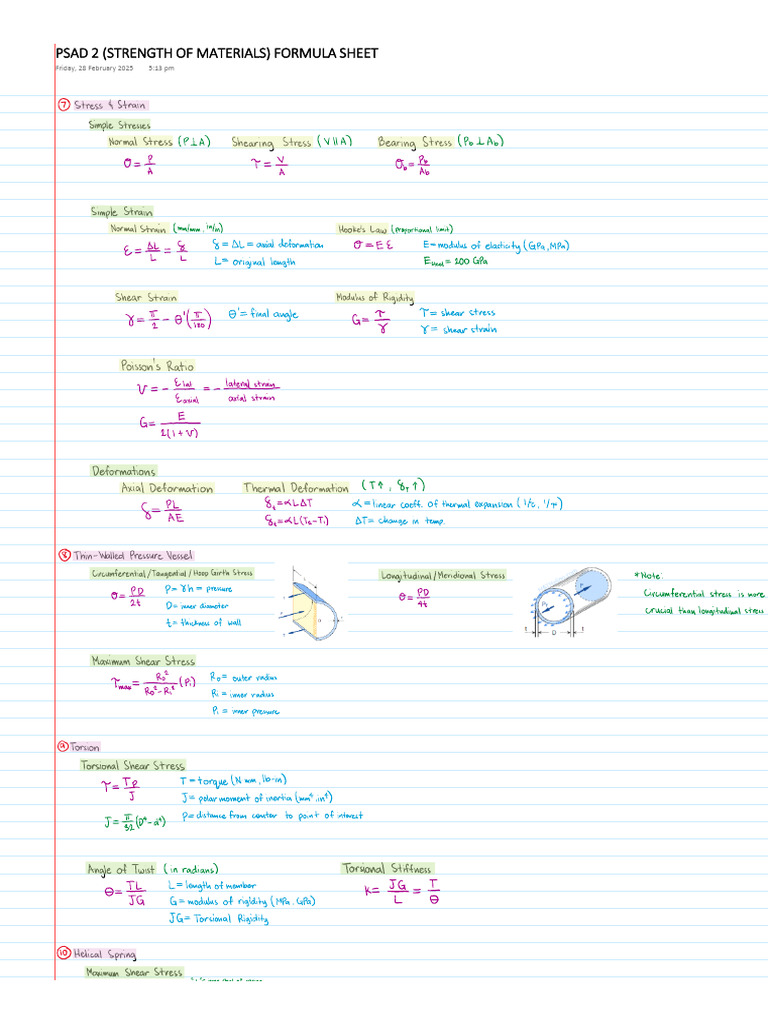 PSAD 2 (STRENGTH OF MATERIALS) FORMULA SHEET
Friday, 28 February 2025 5:13 pm
⑦ Stress & Strain
Simple Stresses
Normal Stress (P⊥A) Shearing Stress (V∥A) Bearing Stress (Pb⊥Ab)
σ = P/A τ = V/A σb = Pb/Ab
Simple Strain
Normal Strain (mm/mm, in/in) Hooke's Law (proportional limit)
ε = ΔL/L = δ/L δ = ΔL = axial deformation σ = Eε E = modulus of elasticity (GPa, MPa)
L = original length Esteel = 200 GPa
Shear Strain Modulus of Rigidity
γ = π/2 − θ'(π/180) θ' = final angle G = τ/γ τ = shear stress
γ = shear strain
Poisson's Ratio
ν = − εlat/εaxial = − lateral strain/axial strain
G = E/2(1+ν)
Deformations
Axial Deformation Thermal Deformation (T↑, δT↑)
δ = PL/AE δt = αLΔT α = linear coeff. of thermal expansion (1/°C, 1/°F)
δt = αL(T2−T1) ΔT = change in temp.
⑧ Thin-Walled Pressure Vessel
Circumferential/Tangential/Hoop Girth Stress Longitudinal/Meridional Stress *Note:
σ = PD/2t P = γh = pressure σ = PD/4t Circumferential stress is more
D = inner diameter crucial than longitudinal stress
t = thickness of wall
Maximum Shear Stress
τmax = Ro²/(Ro²−Ri²) (Pi) Ro = outer radius
Ri = inner radius
Pi = inner pressure
⑨ Torsion
Torsional Shear Stress
τ = Tρ/J T = torque (N mm, lb-in)
J = polar moment of inertia (mm⁴, in⁴)
J = π/32 (D⁴−d⁴) ρ = distance from center to point of interest
Angle of Twist (in radians) Torsional Stiffness
θ = TL/JG L = length of member k = JG/L = T/θ
G = modulus of rigidity (MPa, GPa)
JG = Torsional Rigidity
⑩ Helical Spring
Maximum Shear Stress